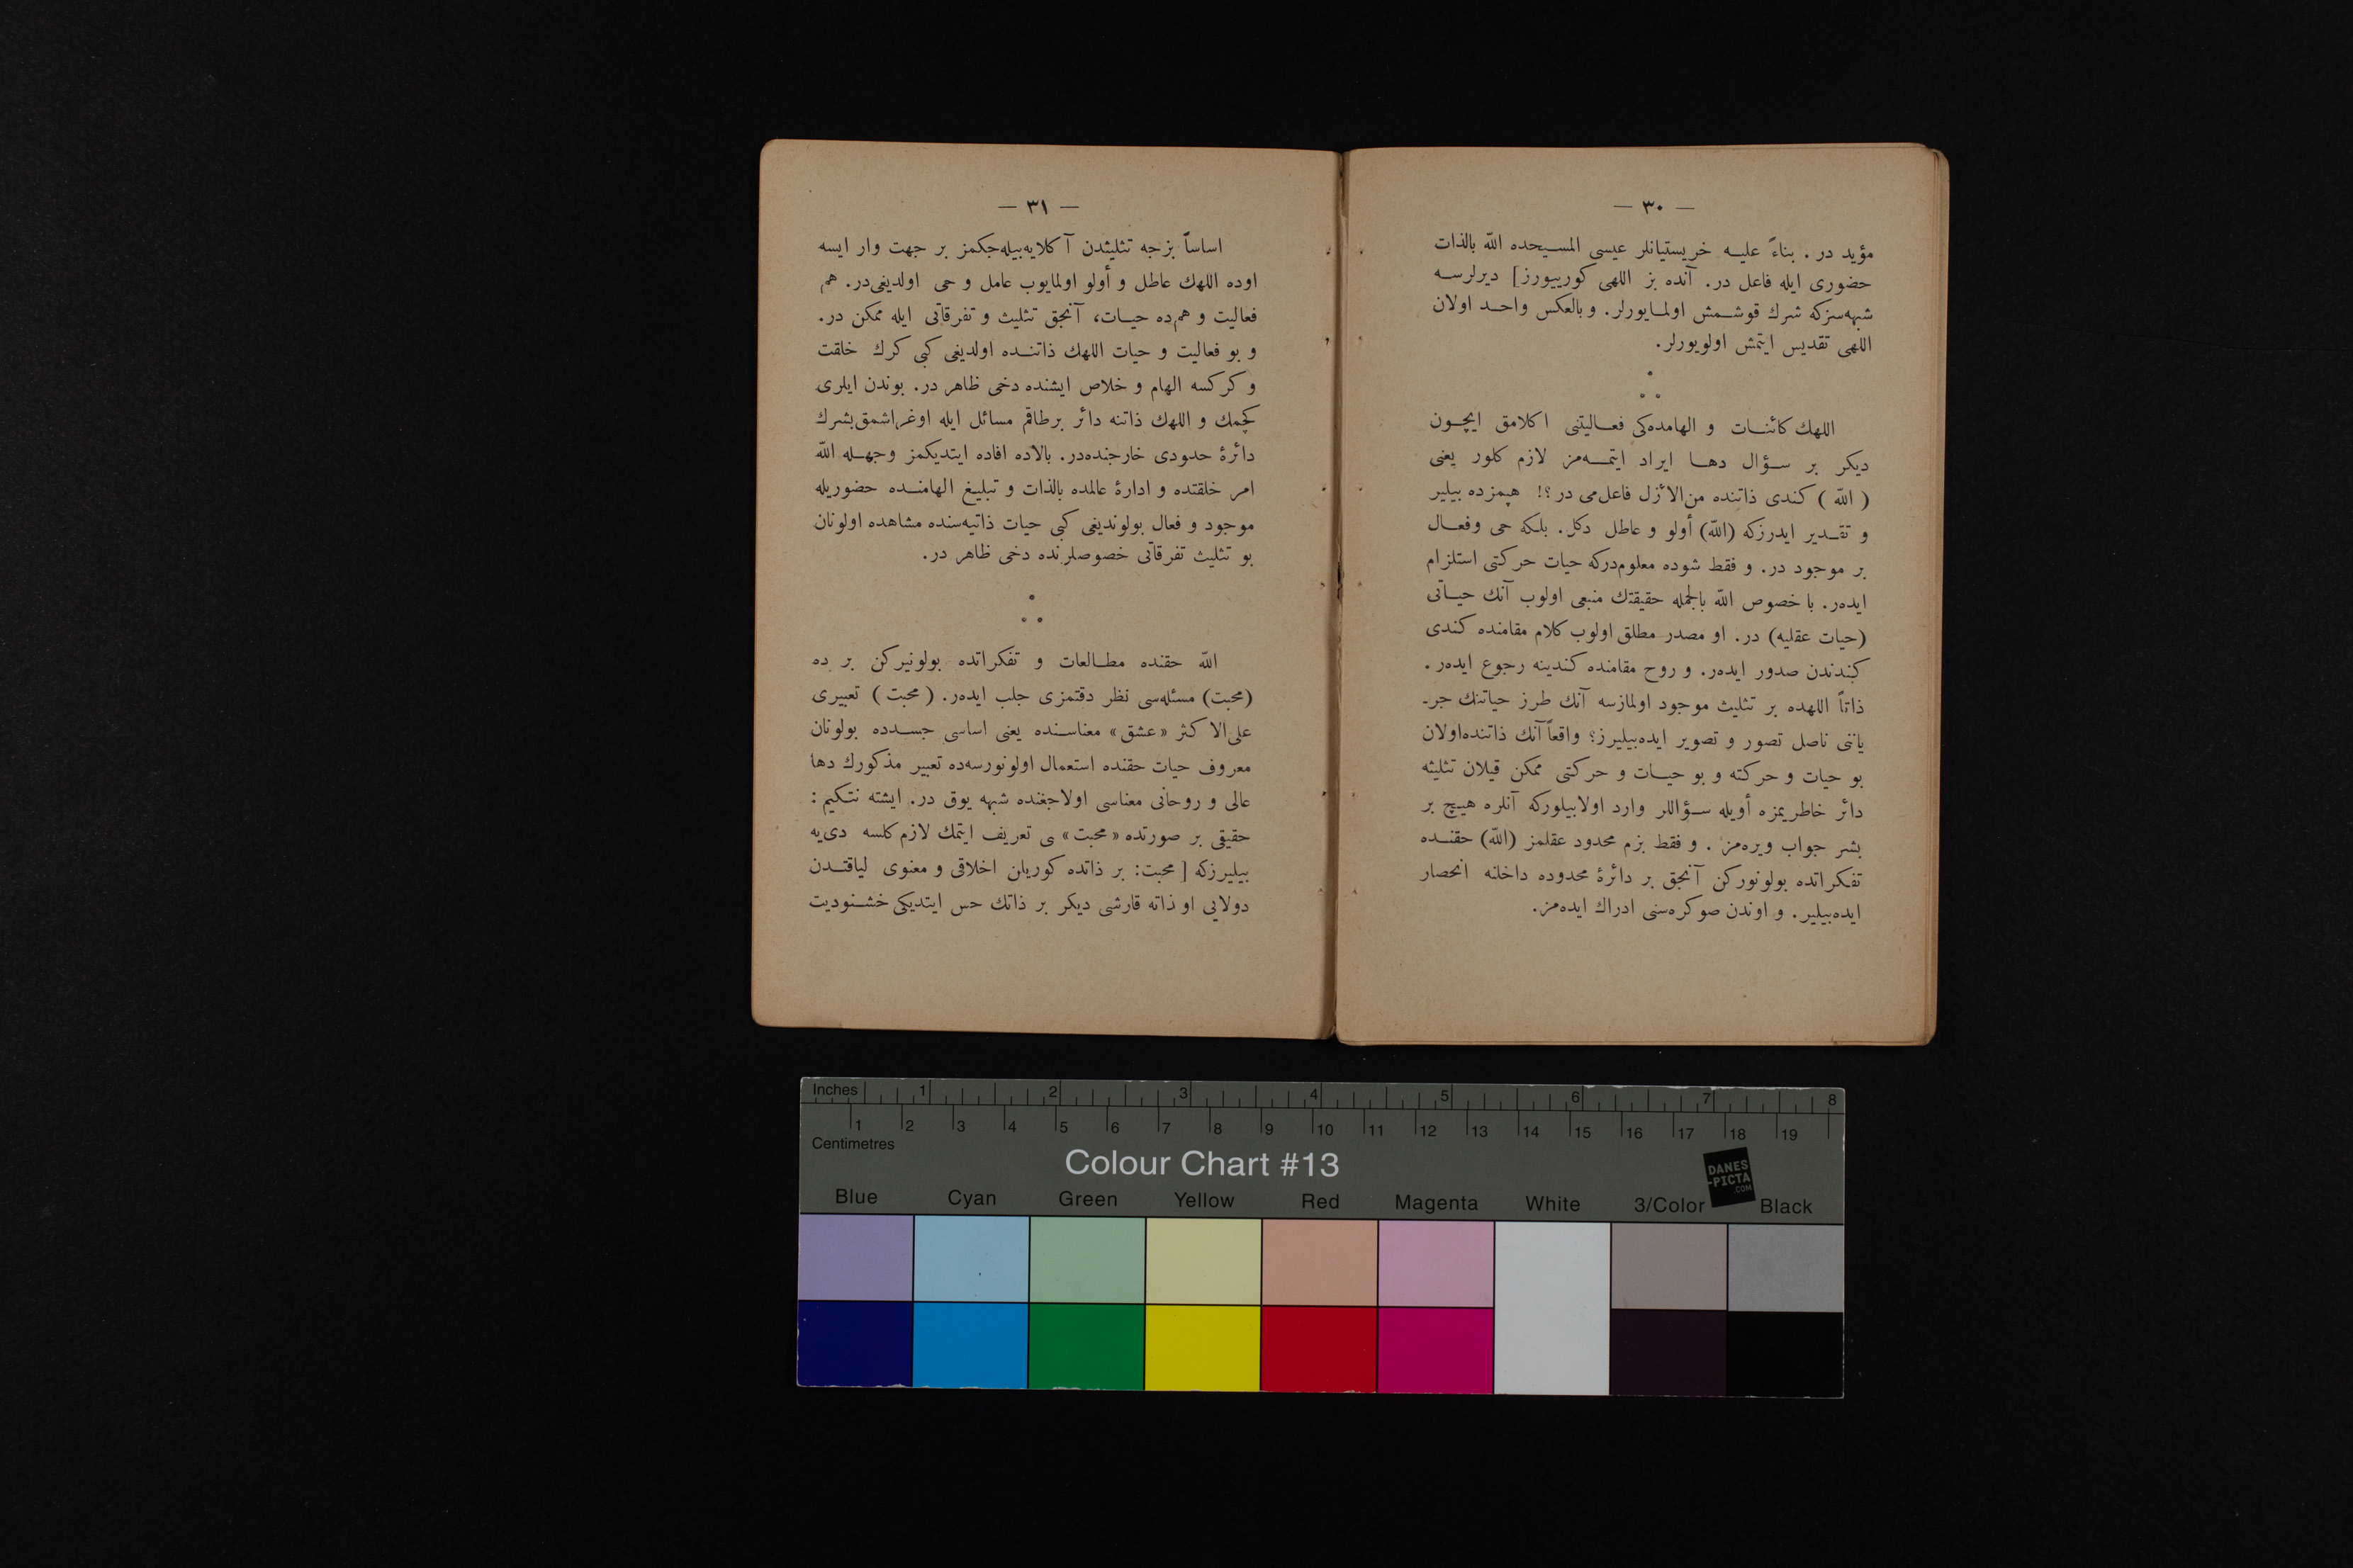 — ٣٠ —
مؤيد در . بناءً عليه خريستيانلر عيسى المسيحده الله بالذات
حضورى ايله فاعل در. آنده بز اللهى كورييورز] ديرلرسه
شبهه‌سزكه شرك قوشمش اولمايورلر. و بالعكس واحد اولان
اللهى تقديس ايتمش اولويورلر.
اللهك كائنات و الهامده‌كى فعاليتنى اكلامق ايچون
ديكر بر سؤال دها ايراد ايتمه‌مز لازم كلور يعنى
( الله ) كندى ذاتنده من‌الأزل فاعل‌مى در؟! هپمزده بيلير
و تقدير ايدرزكه (الله) أولو و عاطل دكل. بلكه حى وفعال
بر موجود در. و فقط شوده معلوم‌دركه حيات حركتى استلزام
ايده‌ر. با خصوص الله بالجمله حقيقتك منبعى اولوب آنك حياتى
(حيات عقليه) در. او مصدر مطلق اولوب كلام مقامنده كندى
كندندن صدور ايده‌ر. و روح مقامنده كندينه رجوع ايده‌ر.
ذاتاً اللهده بر تثليث موجود اولمازسه آنك طرز حياتنك جر-
ياننى ناصل تصور و تصوير ايده‌بيليرز؟ واقعاً آنك ذاتنده‌اولان
بو حيات و حركته و بو حيات و حركتى ممكن قيلان تثليثه
دائر خاطريمزه أويله سؤاللر وارد اولابيلوركه آنلره هيچ بر
بشر جواب ويره‌مز . و فقط بزم محدود عقلمز (الله) حقنده
تفكراتده بولونوركن آنجق بر دائرهٔ محدوده داخلنه انحصار
ايده‌بيلير. و اوندن صوكره‌سنى ادراك ايده‌مز.
— ٣١ —
اساساً بزجه تثليثدن آكلايه‌بيله‌جكمز بر جهت وار ايسه
اوده اللهك عاطل و أولو اولمايوب عامل و حى اولديغى‌در. هم
فعاليت و هم‌ده حيات، آنجق تثليث و تفرقاتى ايله ممكن در.
و بو فعاليت و حيات اللهك ذاتنده اولديغى كبى كرك خلقت
و كركسه الهام و خلاص ايشنده دخى ظاهر در. بوندن ايلرى
كچمك و اللهك ذاتنه دائر برطاقم مسائل ايله اوغراشمق‌بشرك
دائرهٔ حدودى خارجنده‌در. بالاده افاده ايتديكمز وجهله الله
امر خلقتده و ادارهٔ عالمده بالذات و تبليغ الهامنده حضوريله
موجود و فعال بولونديغى كبى حيات ذاتيه‌سنده مشاهده اولونان
بو تثليث تفرقاتى خصوصلرنده دخى ظاهر در.
الله حقنده مطالعات و تفكراتده بولونيركن بر ده
(محبت) مسئله‌سى نظر دقتمزى جلب ايده‌ر. ( محبت ) تعبيرى
على‌الاكثر «عشق» معناسنده يعنى اساسى جسدده بولونان
معروف حيات حقنده استعمال اولونورسه‌ده تعبير مذكورك دها
عالى و روحانى معناسى اولاجغنده شبهه يوق در. ايشته نتكيم :
حقيقى بر صورتده «محبت» ى تعريف ايتمك لازم كلسه دى‌يه
بيليرزكه [ محبت: بر ذاتده كوريلن اخلاقى و معنوى لياقتدن
دولايى او ذاته قارشى ديكر بر ذاتك حس ايتديكى خشنوديت
Inches 1 2 3 4 5 6 7 8
1 2 3 4 5 6 7 8 9 10 11 12 13 14 15 16 17 18 19
Centimetres
Colour Chart #13
DANES
-PICTA
.COM
Blue Cyan Green Yellow Red Magenta White 3/Color Black